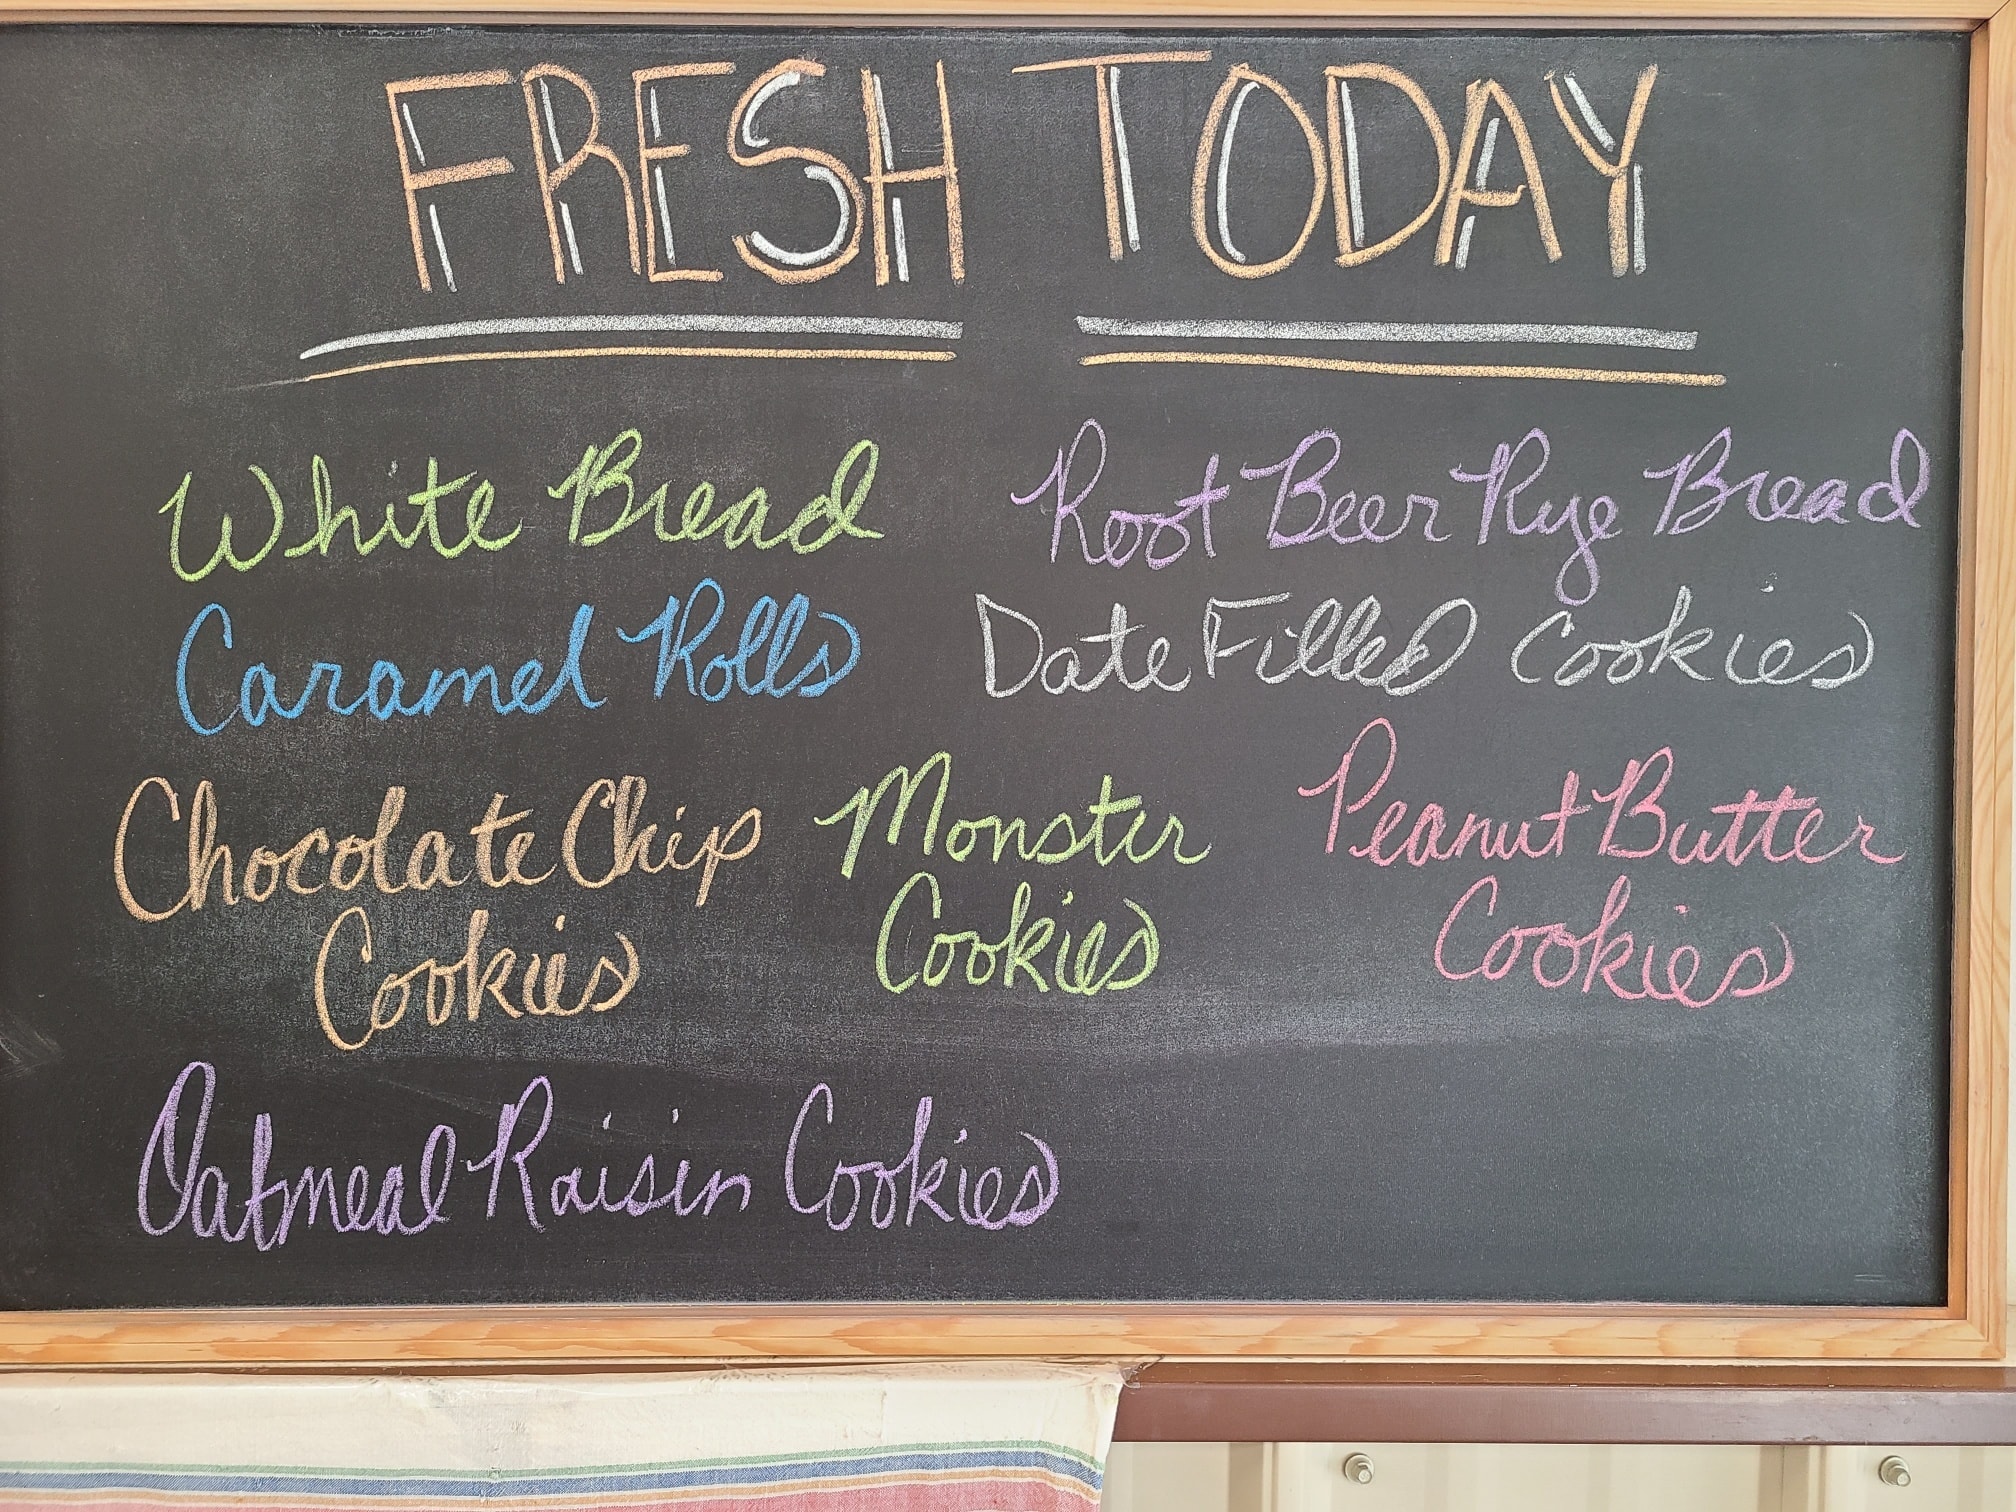 FRESH TODAY
White Bread
Root Beer Rye Bread
Caramel Rolls
Date Filled Cookies
Chocolate Chip
Cookies
Monster
Cookies
Peanut Butter
Cookies
Oatmeal Raisin Cookies